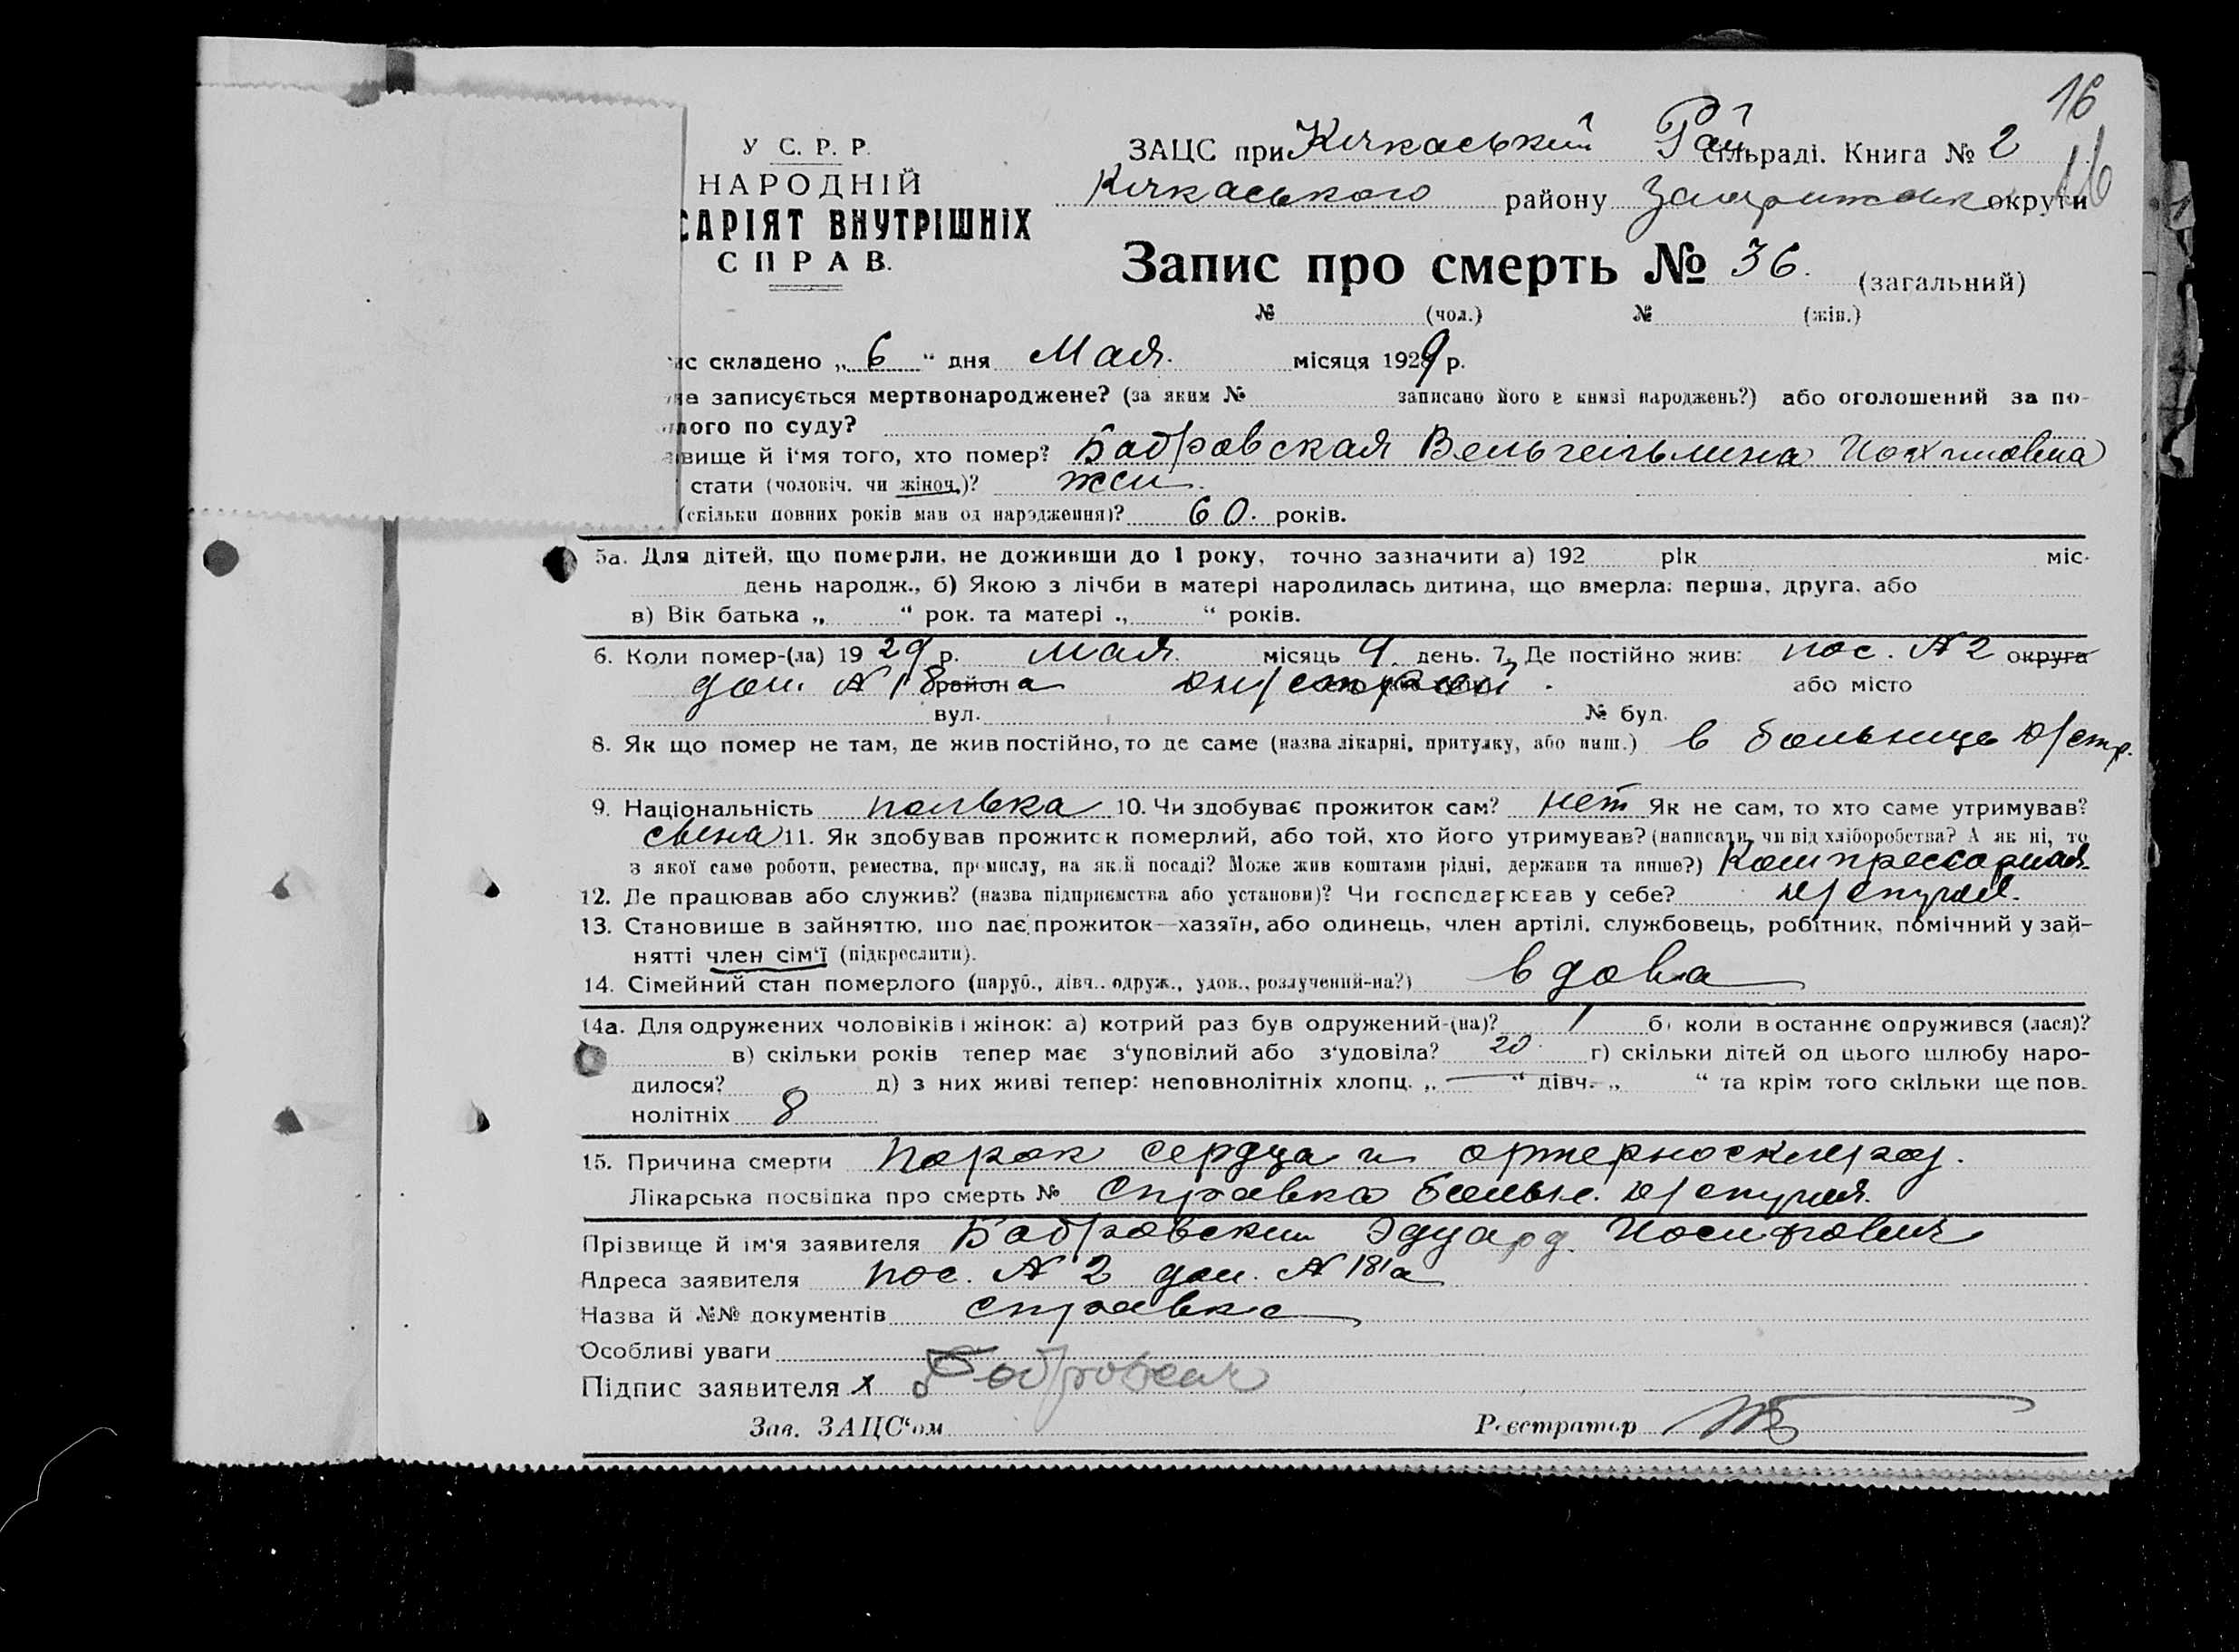 16
16
У С. Р. Р.
НАРОДНІЙ
САРІЯТ ВНУТРІШНІХ
СПРАВ.
ЗАЦС при Кичкаський Рай сільраді. Книга № 2
Кичкаського району округи
Запис про смерть № 36. (загальний)
№ (чол.) № (жін.)
ис складено „ 6 “ дня Мая. місяця 1929 р.
на записується мертвонароджене? (за яким № записано його в книзі народжень?) або оголошений за по-
лого по суду?
вище й і'мя того, хто помер? Бобровская Вельгельмина
стати (чоловіч. чи жіноч.)? жен.
(скільки повних років мав од народження)? 60. років.
5а. Для дітей, що померли, не доживши до 1 року, точно зазначити а) 192 рік міс.
день народж., б) Якою з лічби в матері народилась дитина, що вмерла: перша, друга, або
в) Вік батька „ “ рок. та матері „ “ років.
6. Коли помер-(ла) 1929 р. мая. місяць 4. день. 7. Де постійно жив: пос. № 2 округа
дом. № 18 района або місто
вул. № буд.
8. Як що помер не там, де жив постійно, то де саме (назва лікарні, притулку, або инш.) в больнице Д/стр.
9. Національність полька 10. Чи здобуває прожиток сам? нет Як не сам, то хто саме утримував?
сына 11. Як здобував прожиток померлий, або той, хто його утримував? (написати, чи від хліборобства? А як ні, то
з якої саме роботи, ремества, промислу, на якій посаді? Може жив коштами рідні, держави та инше?) Компрессорная
12. Де працював або служив? (назва підприємства або установи)? Чи господарював у себе?
13. Становище в зайняттю, що дає прожиток—хазяїн, або одинець, член артілі, службовець, робітник, помічний у зай-
нятті член сім'ї (підкреслити).
14. Сімейний стан померлого (паруб., дівч., одруж., удов., розлучений-на?) вдова
14а. Для одружених чоловіків і жінок: а) котрий раз був одружений-(на)? 1 б) коли в останнє одружився (лася)?
в) скільки років тепер має з'уповілий або з'удовіла? 20 г) скільки дітей од цього шлюбу наро-
дилося? д) з них живі тепер: неповнолітніх хлопц. „ — “ дівч. „ “ та крім того скільки ще пов.
нолітніх 8
15. Причина смерти Порок сердца и артериосклероз.
Лікарська посвідка про смерть № Справка больн.
Прізвище й ім'я заявителя Бобровский Эдуард Иосифович
Адреса заявителя пос. № 2 дом. № 181а
Назва й №№ документів справка
Особливі уваги
Підпис заявителя х
Зав. ЗАЦС'ом Реєстратор